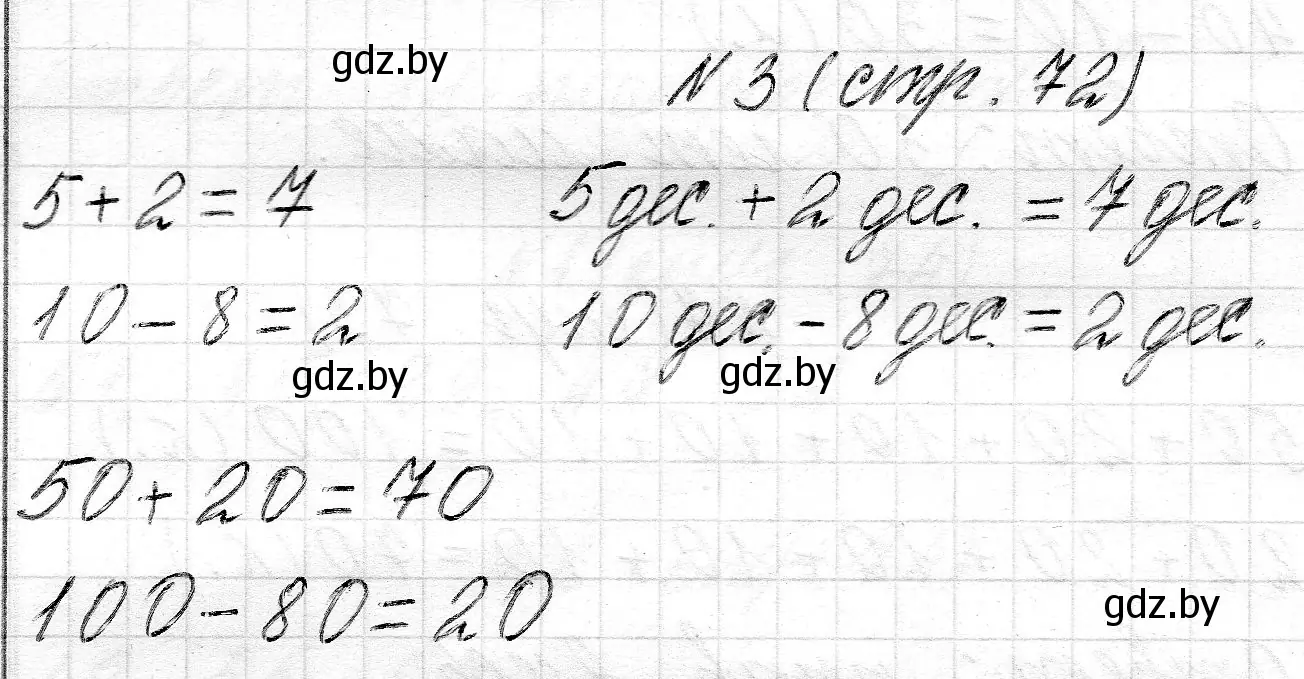 gdz.by
N 3 (стр. 72)
5 + 2 = 7 5 дес. + 2 дес. = 7 дес.
10 - 8 = 2 10 дес. - 8 дес. = 2 дес.
gdz.by gdz.by
50 + 20 = 70
100 - 80 = 20
gdz.by